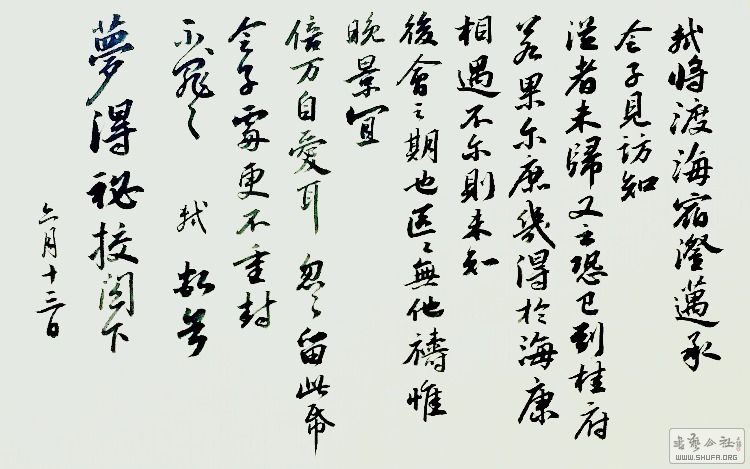 軾將渡海宿澄邁承
令子見訪知
從者未歸又云恐已到桂府
若果尔庶幾得於海康
相遇不尔則未知
後會之期也區〻無他禱惟
晚景宜
倍万自愛耳忽〻留此帋
令子處更不重封
不罪〻 軾 頓首
夢得祕校閣下
六月十三日
书艺公社
WWW.SHUFA.ORG